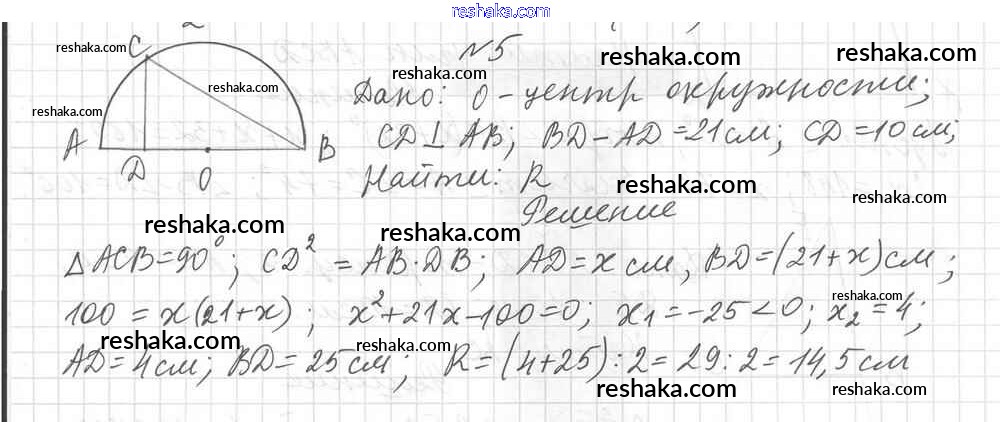 www.reshaka.com
2
N5
reshaka.com
C
reshaka.com
reshaka.com
reshaka.com
reshaka.com
Дано: O - центр окружности;
reshaka.com
A
B
CD ⊥ AB; BD - AD = 21 см; CD = 10 см;
D
O
Найти: R
reshaka.com
reshaka.com
Решение
reshaka.com
reshaka.com
reshaka.com
Δ ACB = 90°; CD² = AB · DB; AD = x см, BD = (21 + x) см;
reshaka.com
100 = x(21 + x); x² + 21x - 100 = 0; x₁ = -25 < 0; x₂ = 4;
reshaka.com
reshaka.com
AD = 4 см; BD = 25 см; R = (4 + 25) : 2 = 29 : 2 = 14,5 см
reshaka.com
reshaka.com